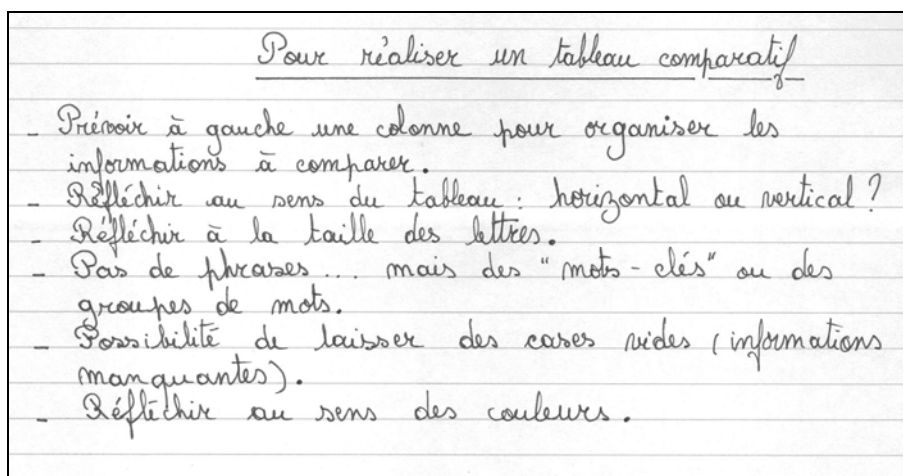 Pour réaliser un tableau comparatif
- Prévoir à gauche une colonne pour organiser les
informations à comparer.
- Réfléchir au sens du tableau : horizontal ou vertical ?
- Réfléchir à la taille des lettres.
- Pas de phrases ... mais des "mots-clés" ou des
groupes de mots.
- Possibilité de laisser des cases vides (informations
manquantes).
- Réfléchir au sens des couleurs.